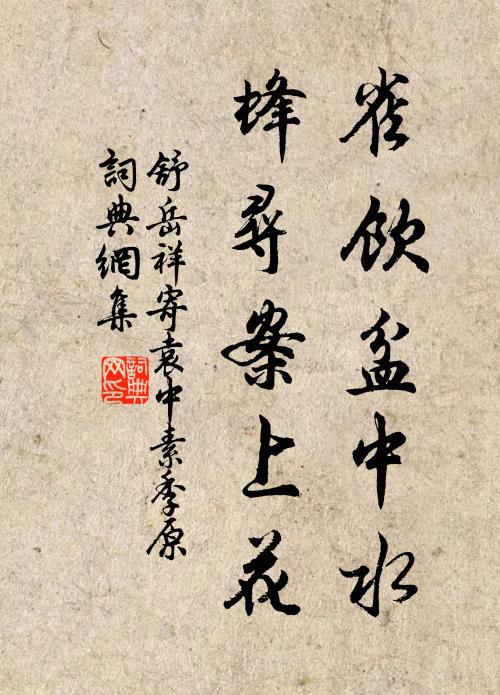 雀飲盆中水
蜂尋案上花
舒岳祥寄袁中素季原
詞典網集
詞典網印